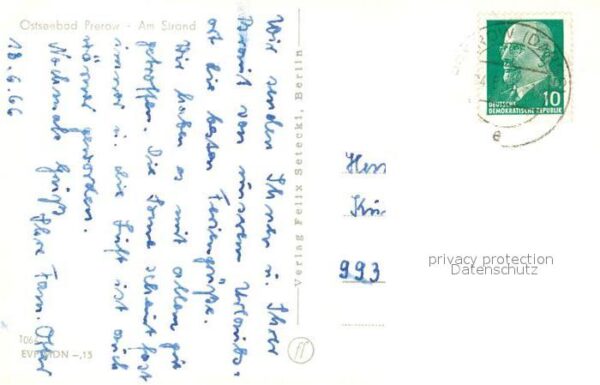 Ostseebad Prerow - Am Strand
Wir senden Ihnen u. Ihrer
Herm. von unserem Urlaubs-
ort die besten Feriengrüße.
Wir haben es mit allem gut
getroffen. Die Sonne scheint fast
immer u. die Luft ist auch
wärmer geworden.
Nochmals Grüße Ihre Fam. Otter
18.6.66
Verlag Felix Setecki, Berlin
EVP MDN -,15
PREROW (DA
e
10
DEUTSCHE
DEMOKRATISCHE REPUBLIK
993
privacy protection
Datenschutz
ff